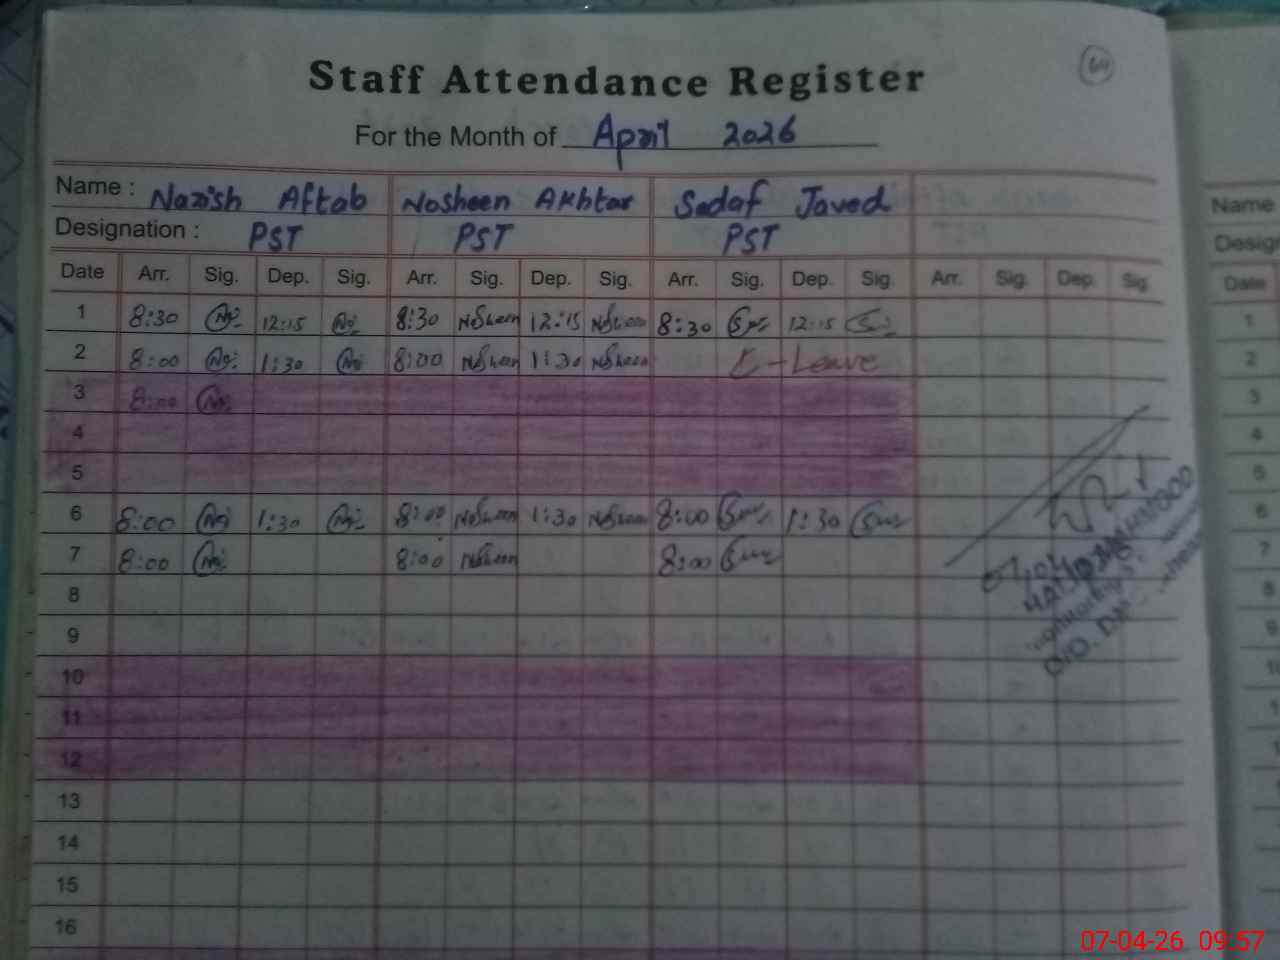 64
Staff Attendance Register
For the Month of April 2026
Name : Nazish Aftab Nosheen Akhtar Sadaf Javed
Designation : PST PST PST
Date Arr. Sig. Dep. Sig. Arr. Sig. Dep. Sig. Arr. Sig. Dep. Sig. Arr. Sig. Dep. Sig.
1 8:30 12:15 8:30 Nosheen 12:15 Nosheen 8:30 12:15
2 8:00 1:30 8:00 Nosheen 1:30 Nosheen Leave
3 8:00
4
5
6 8:00 1:30 8:00 Nosheen 1:30 Nosheen 8:00 1:30
7 8:00 8:00 Nosheen 8:00
8
9
10
11
12
13
14
15
16
Name
Desig
Date
1
2
3
4
5
6
7
8
9
07-04-26 09:57